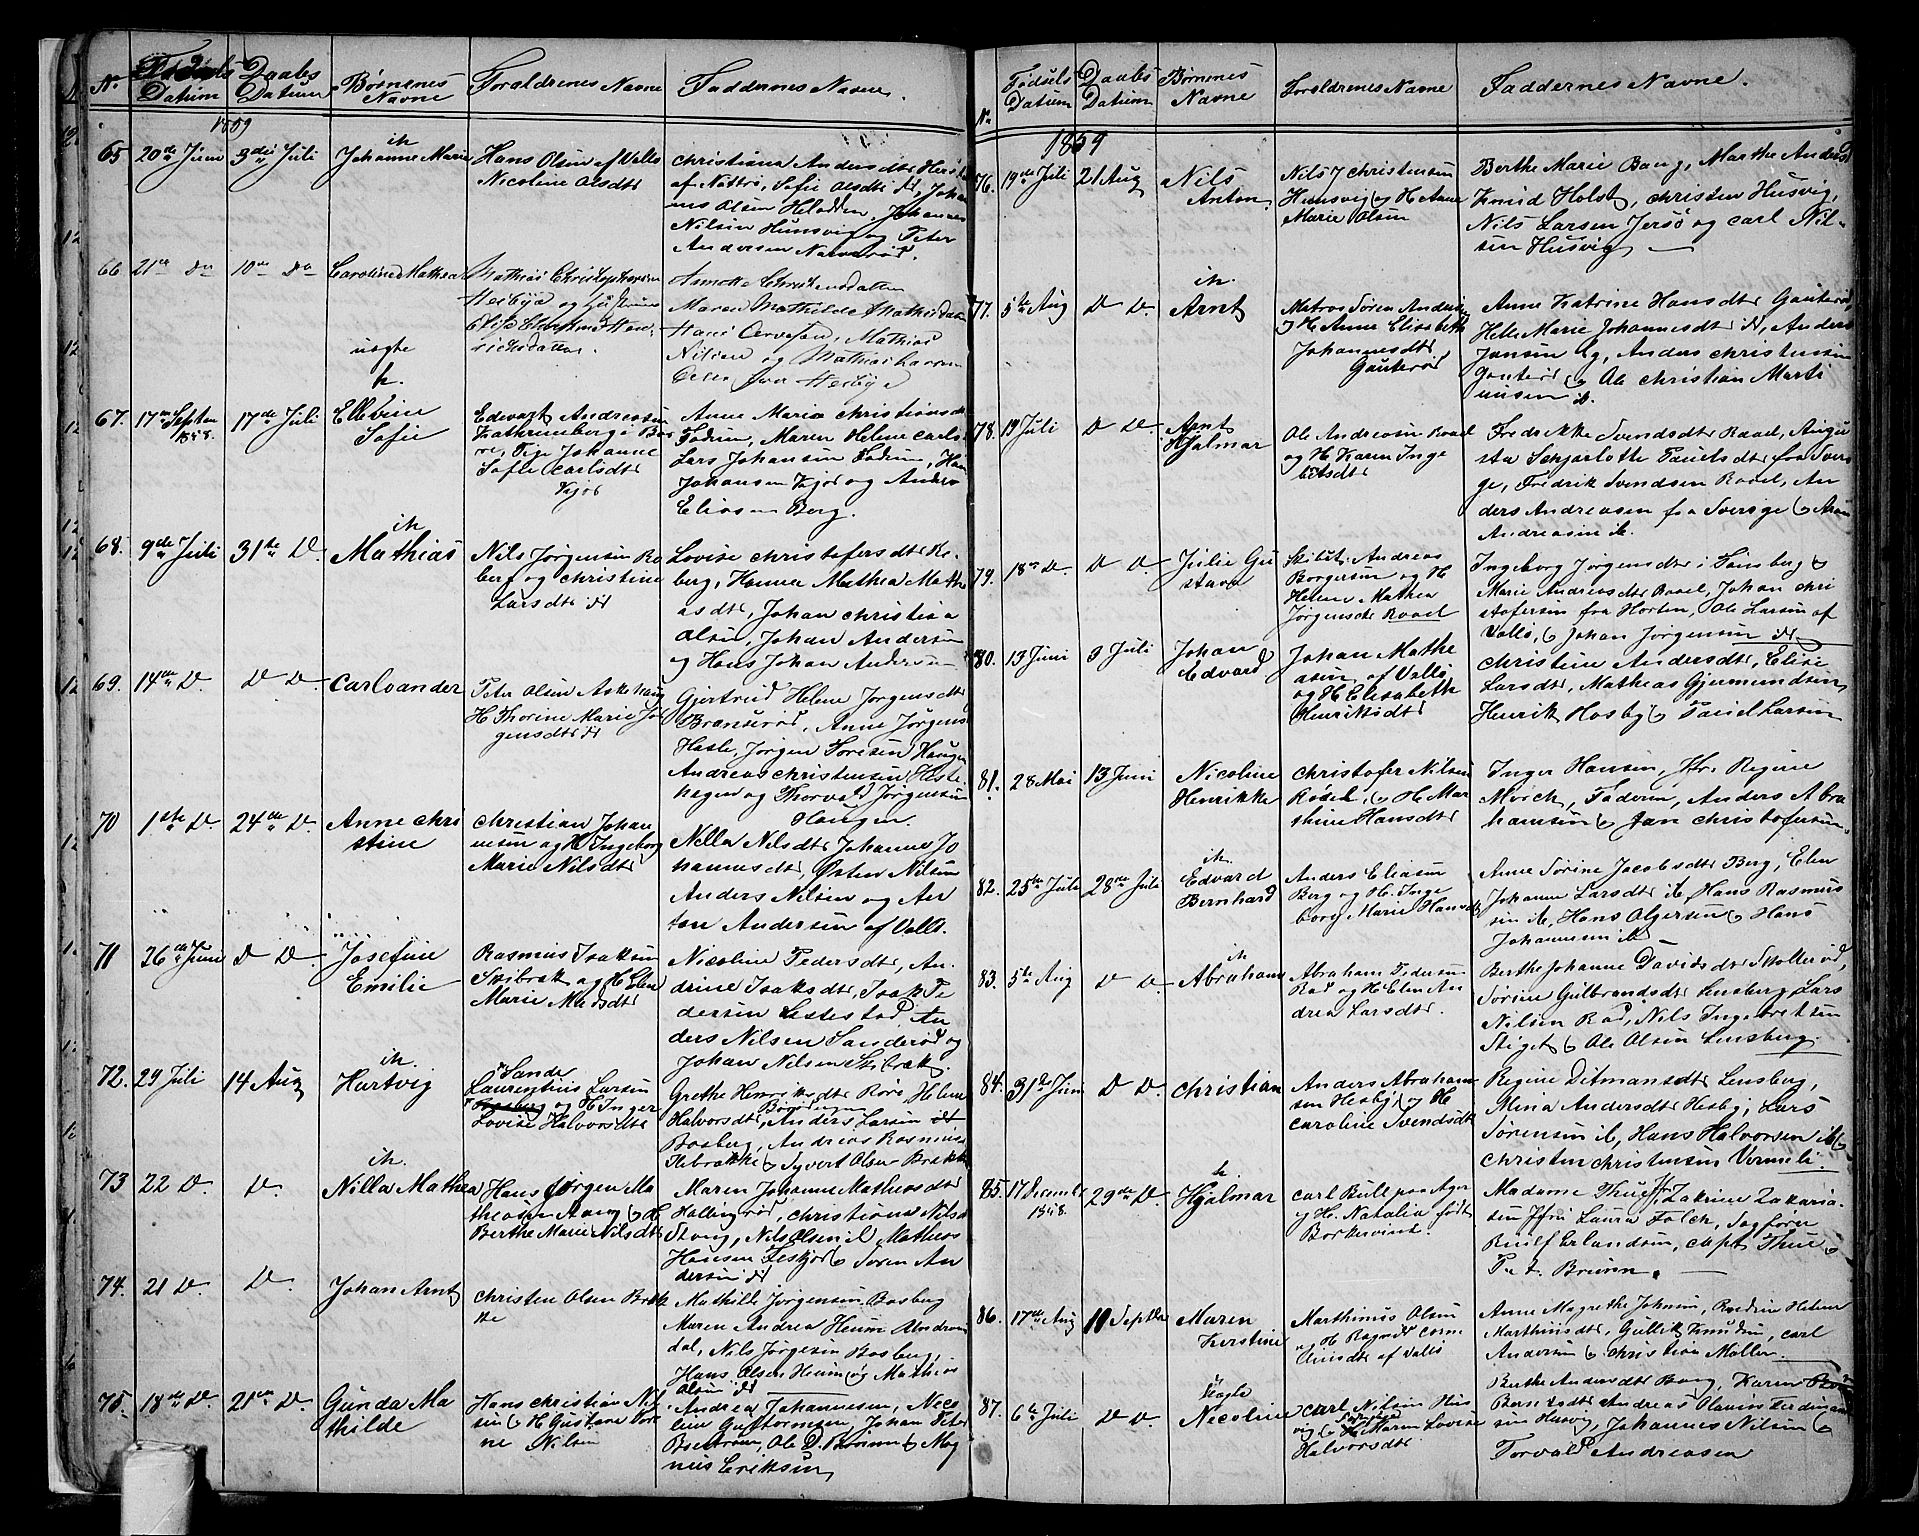 No
Fødsels Datum
Daabs Datum
Børnenes Navne
Forældrenes Navne
Faddernes Navne
1859
65 20de Juni 3die Juli
Johanne Marie
Hans Olsen af Vallø
Nicoline Olsdtr
Christiana Andersdtr
af Nøttrø, Sofie Olsdtr
Nilsen Hunsvig og Peter
Andersen
66 21de Do 10de Do
Caroline Mathea
uægte
Maren Mathilde
Nilsen og Mathias Larsen
67. 17de Septem 1858. 17de Juli
Ellevine
Sofie
Edevart Andreasen
Johanne
Sofie Carlsdtr
Kjør
Anne Maria Christiansdtr
Fadum, Maren Helene Carls
Lars Johansen Fadum, Han
Johansen Kjør og Anders
Eliasen Berg.
68. 9de Juli 31te D.
Mathias
Nils Jørgensen Ro
berg og Christine
Larsdtr
Lovise Christofersdtr Ro
berg, Hanna Mathea Mathi
asdtr, Johan Christia
Olsen, Johan Andersen
og Hans Johan Andersen
69. 14de D. D D.
Carl Oander
Peter Olsen Askehaug
H Thorine Marie Jør
gensdtr
Gjertrud Helene Jørgensdtr
Bransrød, Anne Jørgens
Hasle, Jørgen Sørensen Haugen
Andreas Christensen Hasle
hagen og Thorvald Jørgensen
Haugen
70 1ste D. 24de D.
Anne Chri
stine
Christian Johan
nesen og H Ingeborg
Marie Nilsdtr
Nella Nilsdtr Johanne Jo
hannesdtr, Østen Nilsen
Anders Nilsen og An
ton Andersen af Vallø.
71 26de Juni D D.
Josefine
Emilie
Rasmus Isaksen
Skibrek og H Elen
Marie
Nicoline Pedersdtr, An
drine Isaksdtr, Isak Pe
dersen Sæstad, An
ders Nilsen Sanderød og
Johan Nilsen Skibrek.
72. 29 Juli 14 Aug
Hartvig
Sande
Laurentius Larsen
og H Inger
Lovise Halvorsdtr
Grethe Henriksdtr Røre, Helene
Halvorsdtr, Anders Larsen
Basberg, Andreas Rasmus
Sivert Olsen Brekke
73 22 D. D.
Nilla Mathea
Hans Jørgen Ma
thesen og H
Berthe Marie Nilsdtr
Maren Johanne Mathisdtr
Christiane Nilsd
Stang, Nils Olsen Mathias
Hansen Søren An
dersen
74. 21 D. D.
Johan Arnt
Christen Olsen Brek
ke
Mathilde Jørgensen Basberg
Maren Andrea Heum
dal, Nils Jørgesen Basberg,
Hans Olsen Heum og Mathias
Olsen
75. 18de D. 21de D.
Gunda Ma
thilde
Hans Christian Nil
sen og H Gustane Sør
ne Nilsen
Andrea Johannesen, Nico
line Guttormsen, Johan Peter
Ole D. Brunn og Mag
nus Eriksen
No
Fødsels Datum
Daabs Datum
Børnenes Navne
Forældrenes Navne
Faddernes Navne.
1859
76. 19de Juli 21 Aug
Nils
Anton.
Nils J Christensen
Hunsvig og H Anne
Marie Olsen
Berthe Marie Bang, Marthe Anders
Knud Holst, Christen Husvig,
Nils Larsen Jersø og Carl Nil-
sen Husvig
77. 5te Aug D D.
Arnt
Matros Søren Anders
og H Anne Elisabeth
Johannesdtr
Gauterød
Anne Katrine Hansdtr Gauterød,
Helle Marie Johannesdtr, Anders
Jansen, Anders Christensen
Gauterød og Ole Christian Marti
nusen
78. 19 Juli D D.
Arnt
Hjalmar
Ole Andreasen Raael
og H Karen Inge
bretsdtr
Fredrikke Svendsdtr Raael, Augu
sta Scharlotte Paulsdtr fra Sver
ge, Fredrik Svendsen Raael, An
ders Andreasen fra Sverige og
Andreasen
79. 18de D. D D.
Julie Gu
stava
Andreas
Borgersen og H
Helene Mathea
Jørgensdtr Raael
Ingeborg Jørgensdtr i Tønsberg,
Marie Andreasdtr Raael, Johan Chri
stofersen fra Horten, Ole Larsen af
Vallø, og Johan Jørgensen
80. 13 Juni 3 Juli
Johan
Edvard
Johan Mathe
asen, af Vallø
og H Elisabeth
Henriksdtr
Christine Andersdtr, Elise
Larsdtr, Mathias Gjermundsen,
Henrik Hosby og Paul Larsen
81. 28 Mai 13 Juni
Nicoline
Henrikke
Christofer Nilsen
Rødsl, og H Mar
thine Hansdtr
Inger Hansen, Jfr. Regine
Mørch, Faderen, Anders Abra
hamsen og Jan Christofersen.
82. 25de Juli 28de Juli
Edvard
Bernhard
Anders Eliasen
Berg og H. Inge
borg Marie Hansdtr
Anne Sørine Jacobsdtr Berg, Elen
Johanne Larsdtr ib, Hans Rasmus
sen ib, Hans Olgersen og Hans
Johannesen ib
83. 5te Aug D D.
Abraham
Abraham Pedersen
Rød og H Elen An
drea Larsdtr.
Berthe Johanne Davidsdtr Skollerød,
Sørine Gulbrandsdtr Lensberg, Lars
Nilsen Rød, Nils Ingebretsen
Stiget og Ole Olsen Lensberg.
84. 31te Juni D D.
Christian
Anders Abraham
sen Hesby, og H
Caroline Svendsdtr
Regine Ditmansdtr Lensberg,
Mina Andersdtr Hesby, Lars
Sørensen ib, Hans Halvorsen ib
Christen Christensen Vermeli.
85. 17 December 1858. 29de D.
Hjalmar
Carl Bull paa Ager
og H. Natalia født
Borkevint.
Madame Thue, Jfr Zakrine Zakaria
sen Jfr Laura Falch, Sagfører
Rulf Erlandsen, Capt Thue
P. A. Brunn.
86. 17de Aug 10 Septbr
Maren
Kirstine
Marthinus Olsen
og H Ragnild Corne
liusdtr af Vallø
Anne Magrethe Johnsen, Helene
Marthinsdtr, Gullik Knudsen, Carl
Andersen og Christian Møller.
87. 6te Juli D D.
Uægte
Nicoline
Carl Nilsen Hus
vig og H Maren Lovise
Halvorsdtr
Berthe Andersdtr Bang, Karen
Berntsdtr Andreas Olausen
sen Husvig, Johannes Nilsen
Torvald Andreasen